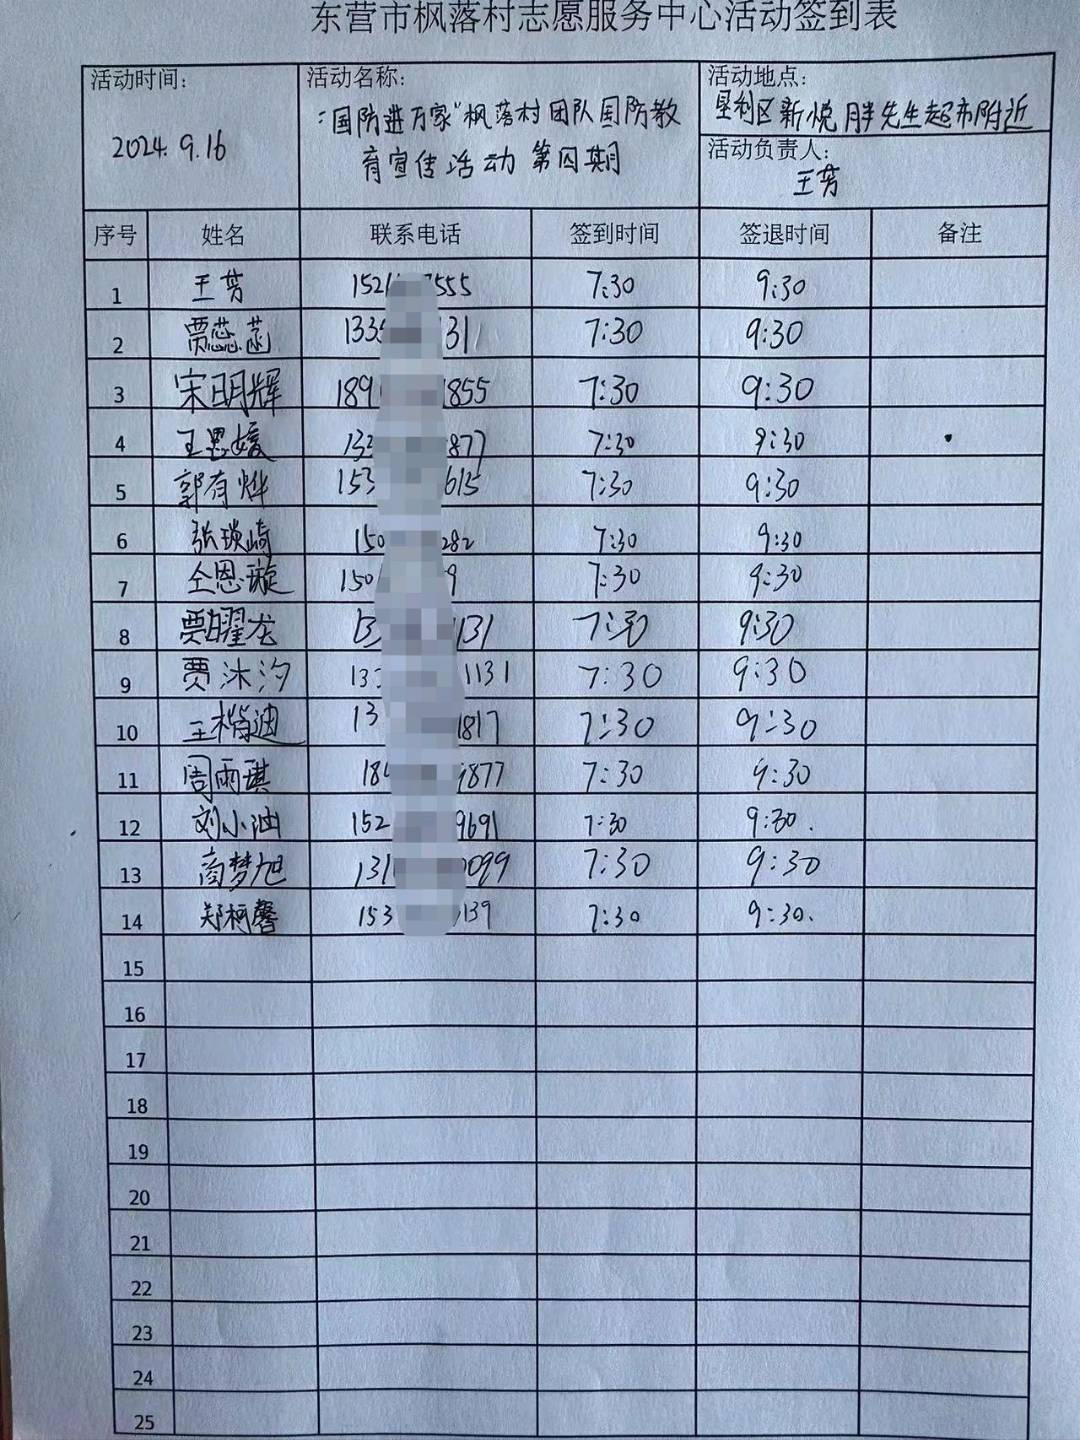 东营市枫落村志愿服务中心活动签到表
活动时间：
2024.9.16
活动名称：
"国防进万家"枫落村团队国防教
育宣传活动 第四期
活动地点：
垦利区新悦胖先生超市附近
活动负责人：
王芳
序号 姓名 联系电话 签到时间 签退时间 备注
1 王芳 152 7555 7:30 9:30
2 贾蕊菡 133 131 7:30 9:30
3 宋明辉 189 1855 7:30 9:30
4 王思媛 133 877 7:30 9:30
5 郭有烨 153 615 7:30 9:30
6 张琰崎 150 282 7:30 9:30
7 仝恩璇 150 9 7:30 9:30
8 贾曜龙 13 131 7:30 9:30
9 贾沐汐 133 1131 7:30 9:30
10 王楷迪 13 1817 7:30 9:30
11 周雨琪 18 9877 7:30 9:30
12 刘小迪 152 9691 7:30 9:30.
13 商梦旭 131 0099 7:30 9:30
14 郑柯馨 153 139 7:30 9:30.
15
16
17
18
19
20
21
22
23
24
25